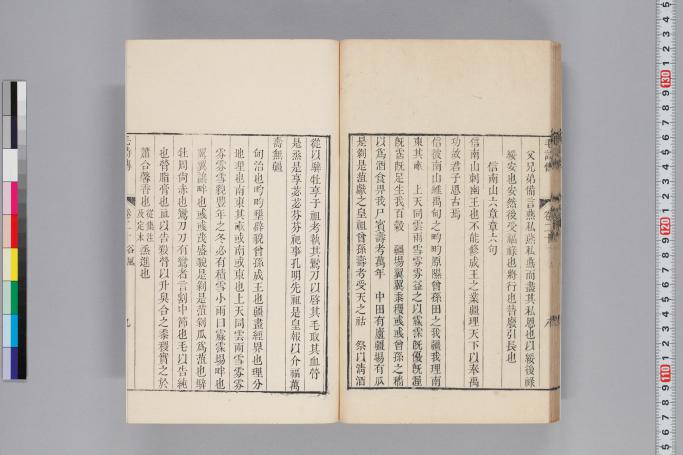 父兄弟備言燕私燕私燕而盡其私恩也以綏後祿
綏安也安然後受福祿也將行也替廢引長也
信南山六章章六句
信南山刺幽王也不能修成王之業疆理天下以奉禹
功故君子思古焉
信彼南山維禹甸之畇畇原隰曾孫田之我疆我理南
東其畝 上天同雲雨雪雰雰益之以霢霂旣優旣渥
旣霑旣足生我百穀 疆埸翼翼黍稷彧彧曾孫之穡
以爲酒食畀我尸賓壽考萬年 中田有廬疆埸有瓜
是剝是菹獻之皇祖曾孫壽考受天之祜 祭以淸酒
從以騂牡享于祖考執其鸞刀以啓其毛取其血膋
是烝是享苾苾芬芬祀事孔明先祖是皇報以介福萬
壽無疆
甸治也畇畇墾辟貌曾孫成王也疆畫經界也理分
地理也南東其畝或南或東也上天同雲雨雪雰雰
雰雰雪貌豐年之冬必有積雪小雨曰霢霂埸畔也
翼翼讓畔也彧彧茂盛貌是剝是菹剝瓜爲菹也騂
牡周尙赤也鸞刀刀有鸞者言割中節也毛以告純
也膋脂膏也血以告殺膋以升臭合之黍稷實之於
蕭合馨香也
烝進也
毛詩傳
卷二
110
120
130